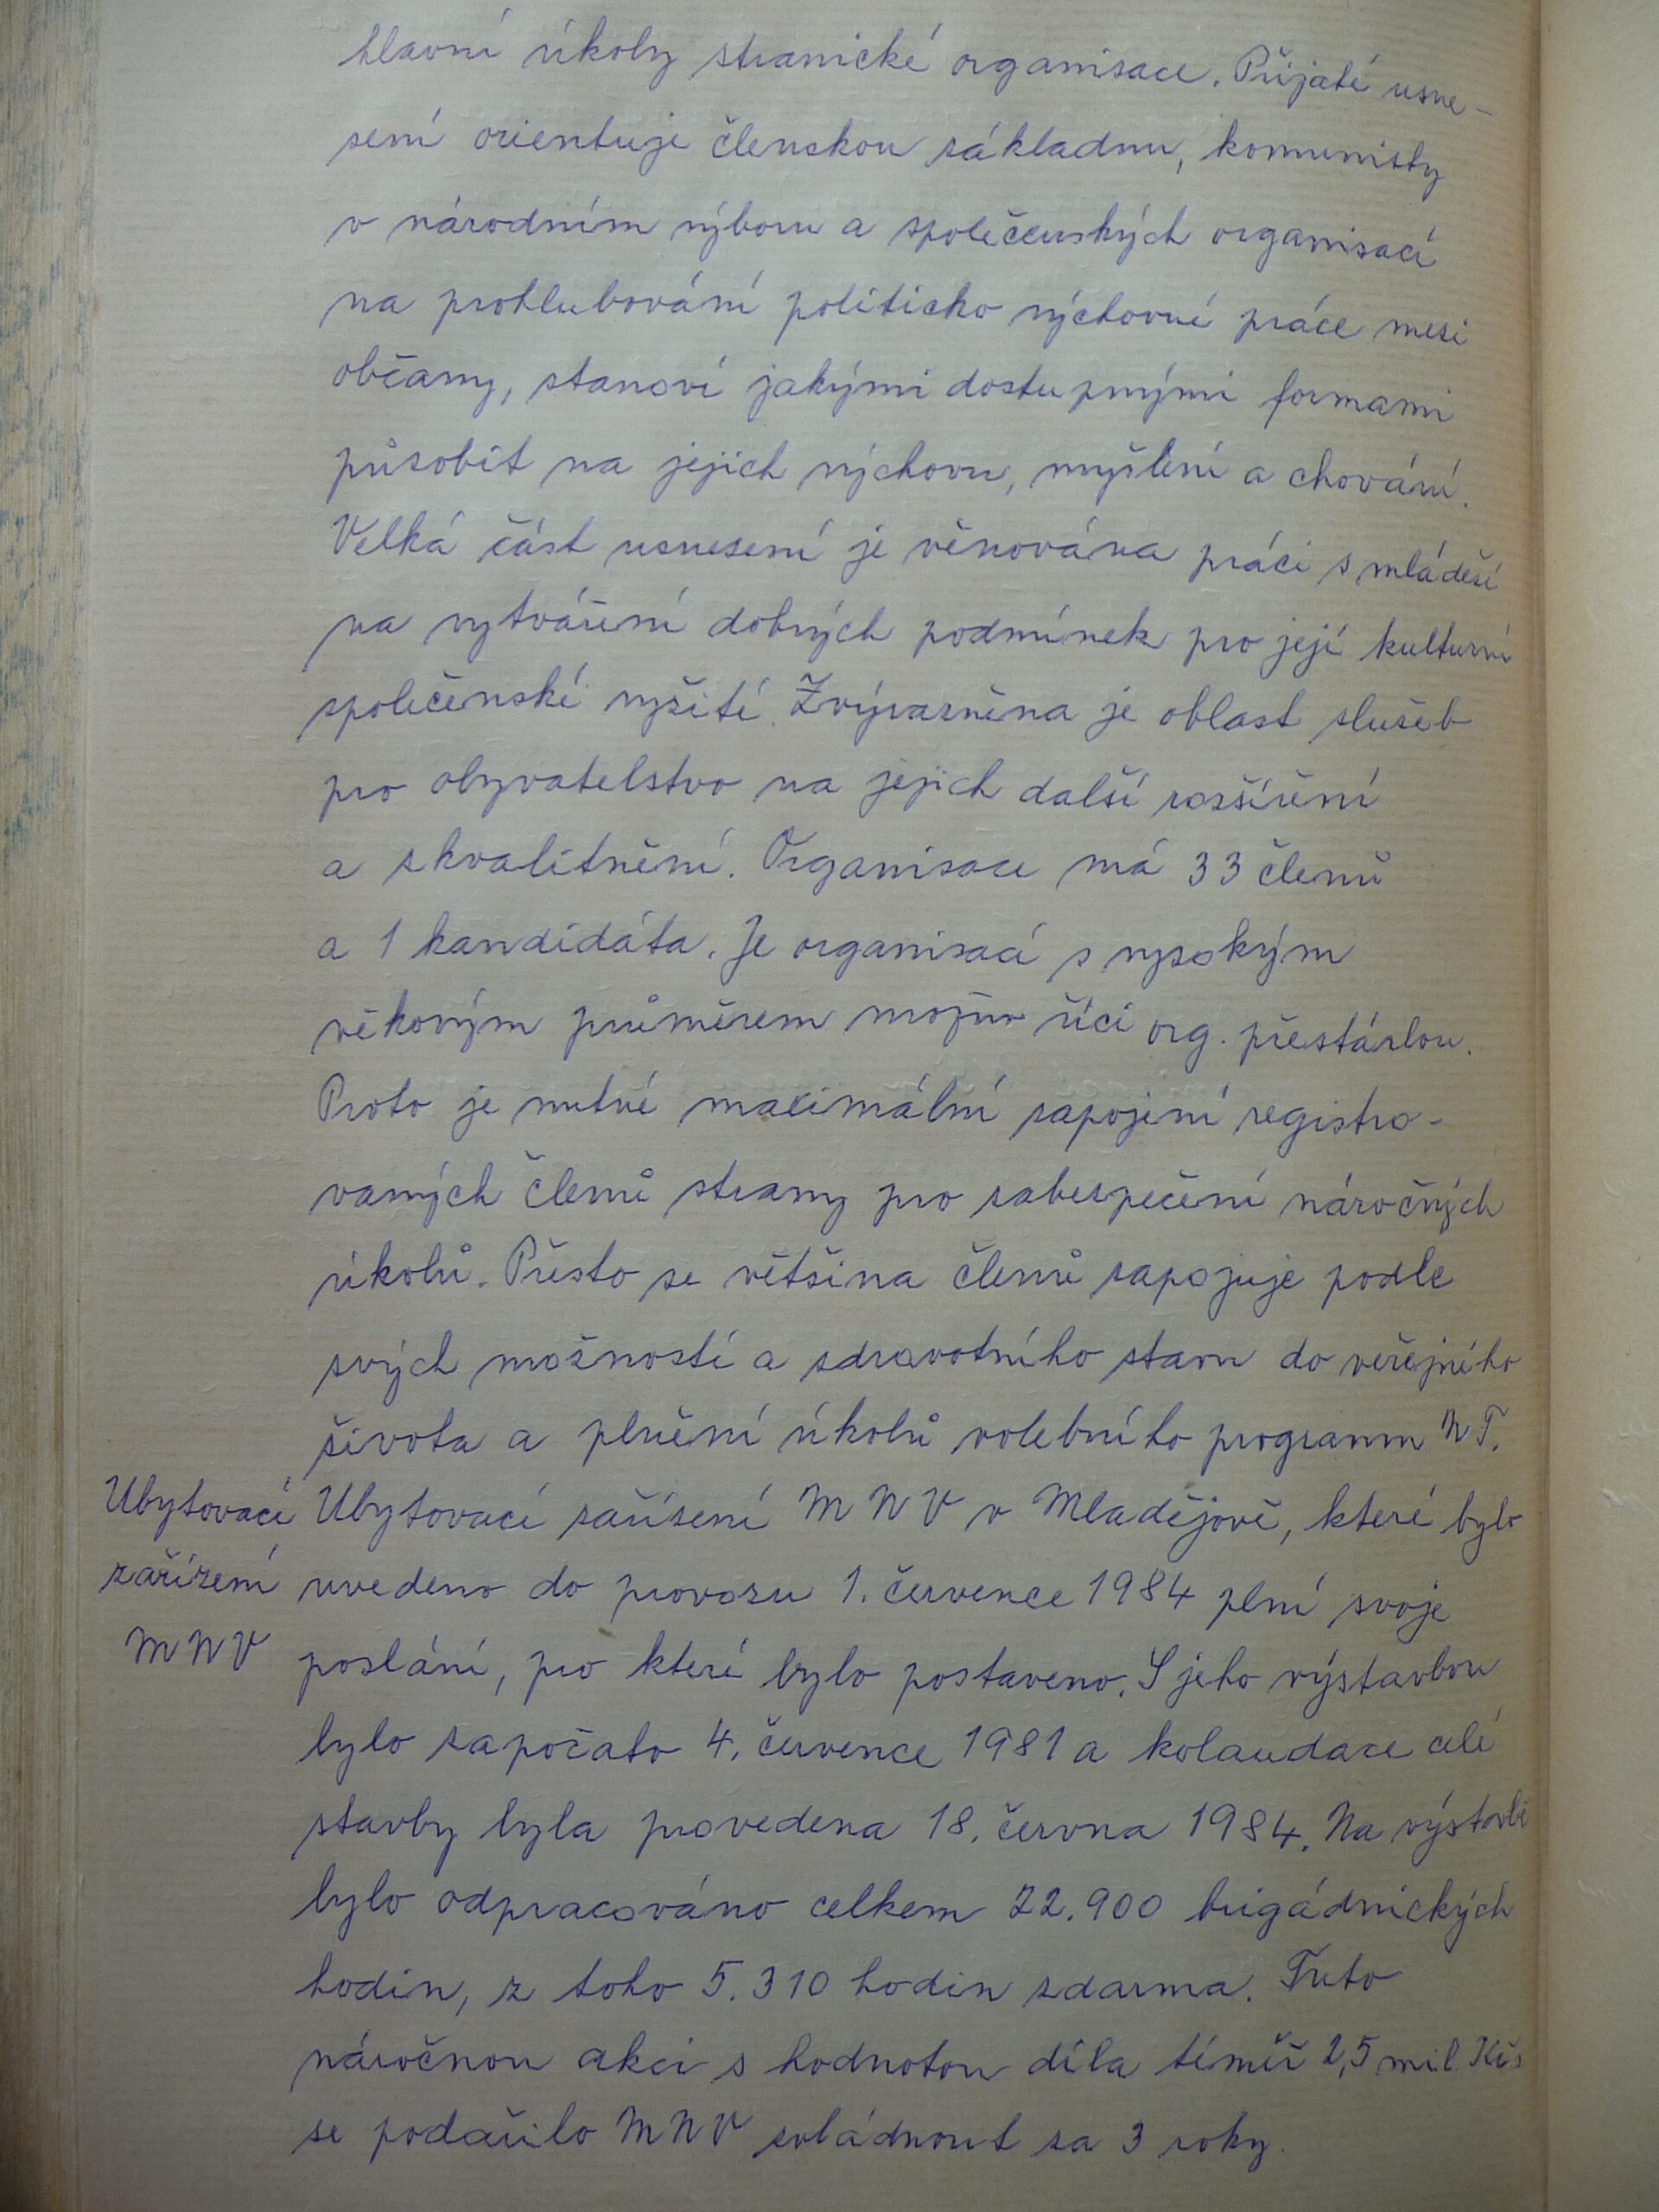 hlavní úkoly stranické organisace. Přijaté usne-
sení orientuje členskou základnu, komunisty
v národním výboru a společenských organisací
na prohlubování politicko výchovné práce mezi
občany, stanoví jakými dostupnými formami
působit na jejich výchovu, myšlení a chování.
Velká část usnesení je věnována práci s mládeží
na vytváření dobrých podmínek pro její kulturní
společenské vyžití. Zvýrazněna je oblast služeb
pro obyvatelstvo na jejich další rozšíření
a zkvalitnění. Organisace má 33 členů
a 1 kandidáta. Je organisací s vysokým
věkovým průměrem možno říci org. přestárlou.
Proto je nutné maximální zapojení registro-
vaných členů strany pro zabezpečení náročných
úkolů. Přesto se většina členů zapojuje podle
svých možností a zdravotního stavu do veřejného
života a plnění úkolů volebního programu NF.
Ubytovací Ubytovací zařízení MNV v Mladějově, které bylo
zařízení uvedeno do provozu 1. července 1984 plní svoje
MNV poslání, pro které bylo postaveno. S jeho výstavbou
bylo započato 4. července 1981 a kolaudace celé
stavby byla provedena 18. června 1984. Na výstavbě
bylo odpracováno celkem 22.900 brigádnických
hodin, z toho 5.310 hodin zdarma. Tuto
náročnou akci s hodnotou díla téměř 2,5 mil. Kčs
se podařilo MNV zvládnout za 3 roky.